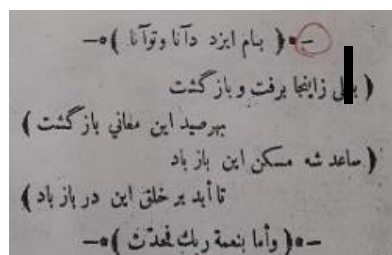 بنام ایزد دآنا وتوآنا
زاینجا برفت وبازگشت
بهرصید این معاني بازگشت
ساعد شه مسکن این باز باد
تا أبد بر خلق این در باز باد
وأما بنعمة ربك فحدّث